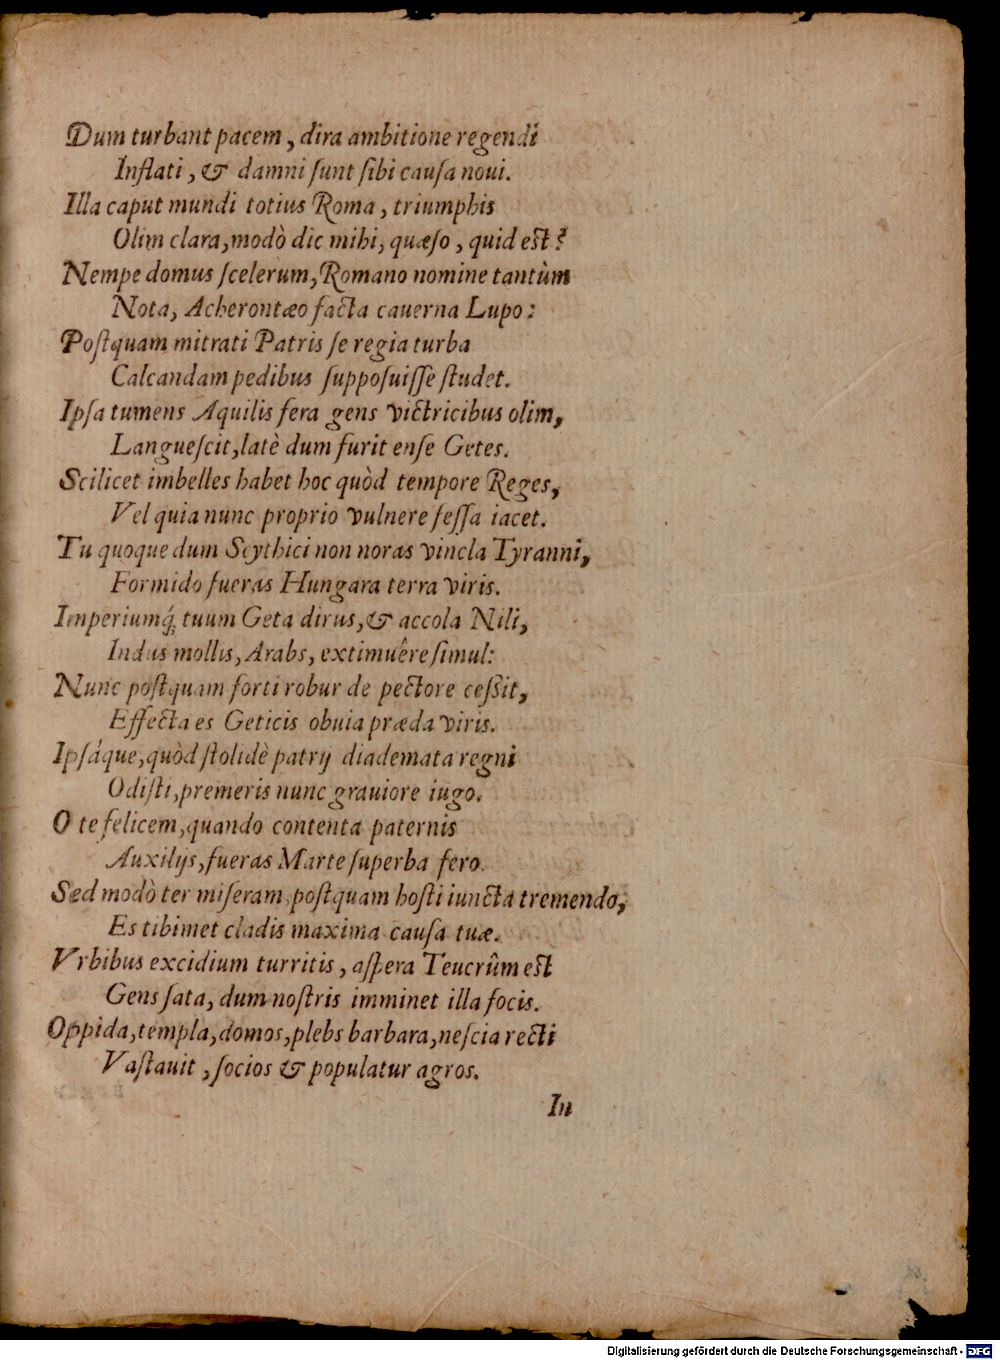 Dum turbant pacem, dira ambitione regendi
Inflati, & damni ſunt ſibi cauſa noui.
Illa caput mundi totius Roma, triumphis
Olim clara, modò dic mihi, quæſo, quid est?
Nempe domus ſcelerum, Romano nomine tantùm
Nota, Acherontæo facta cauerna Lupo:
Poſtquam mitrati Patris ſe regia turba
Calcandam pedibus ſuppoſuiſſe ſtudet.
Ipſa tumens Aquilis fera gens victricibus olim,
Langueſcit, latè dum furit enſe Getes.
Scilicet imbelles habet hoc quòd tempore Reges,
Vel quia nunc proprio vulnere feſſa iacet.
Tu quoque dum Scythici non noras vincla Tyranni,
Formido fueras Hungara terra viris.
Imperiumq́; tuum Geta dirus, & accola Nili,
Indus mollis, Arabs, extimuêre ſimul:
Nunc poſtquam forti robur de pectore ceſsit,
Effecta es Geticis obuia præda viris.
Ipſáque, quòd ſtolidè patrij diademata regni
Odiſti, premeris nunc grauiore iugo.
O te felicem, quando contenta paternis
Auxilijs, fueras Marte ſuperba fero.
Sed modò ter miſeram poſtquam hoſti iuncta tremendo,
Es tibimet cladis maxima cauſa tuæ.
Vrbibus excidium turritis, aſpera Teucrûm est
Gens ſata, dum noſtris imminet illa focis.
Oppida, templa, domos, plebs barbara, neſcia recti
Vaſtauit, ſocios & populatur agros.
In
Digitalisierung gefördert durch die Deutsche Forschungsgemeinschaft - DFG